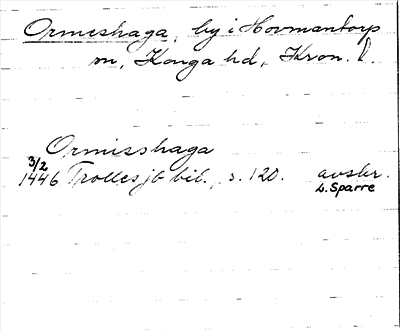 Ormeshaga, by i Hovmantorp
sn, Konga hd, Kron. l.
Ormisshaga
3/2
1446 Trolles jb bil., s. 120. avskr.
L. Sparre